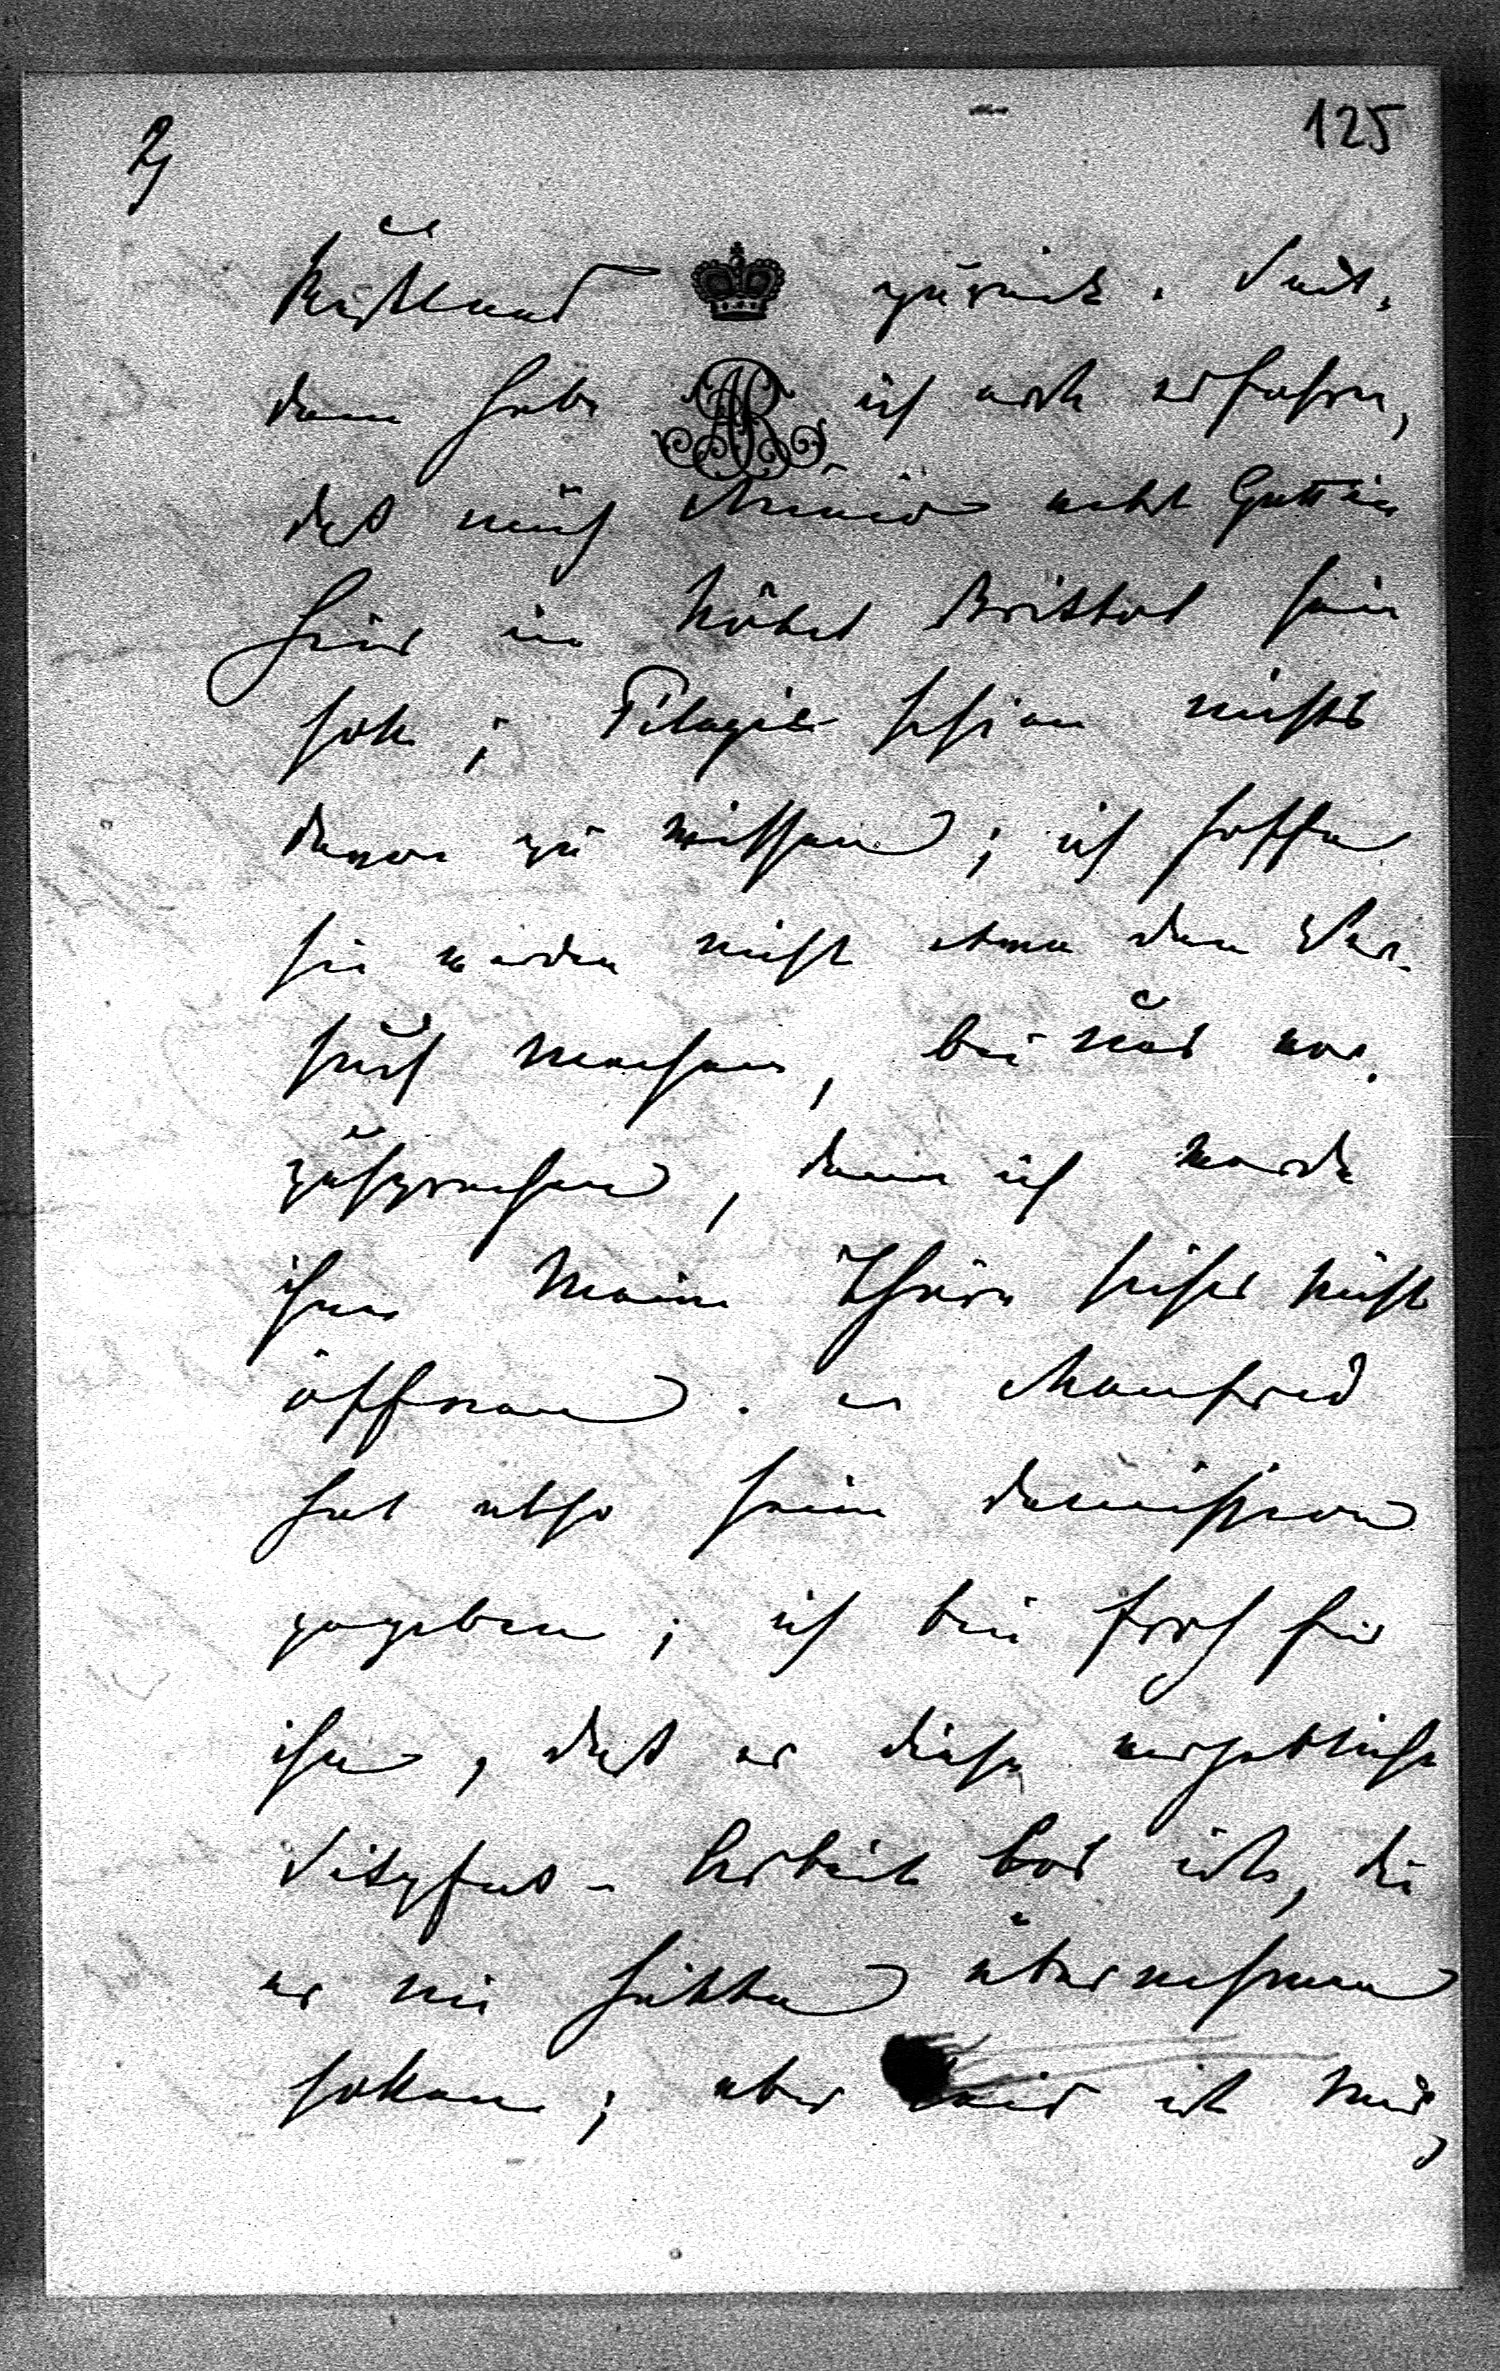 2)
125
Rußland zurück. Seit-
dem habe ich auch erfahren,
daß auch Münir nebst Gattin
hier im Hôtel Bristol sein
soll; Pélagie schien nichts
davon zu wissen; ich hoffe
sie werden nicht etwa den Ver-
such machen, bei uns vor-
zusprechen, denn ich werde
ihnen meine Thüre sicher nicht
öffnen. Manfred
hat also seine Demission
gegeben; ich bin froh für
ihn, daß er diese vergebliche
Sisyfus-Arbeit los ist, die
er nie hätte übernehmen
sollen; aber leid ist mir,